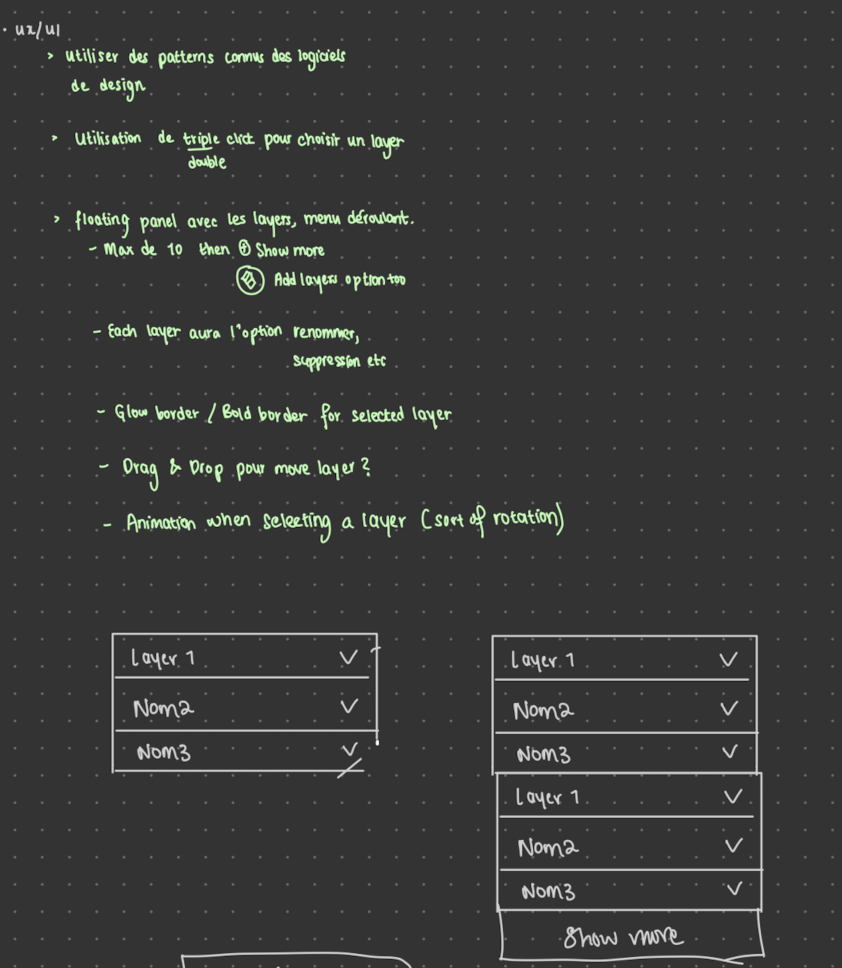 · ux/ui
> utiliser des patterns connus des logiciels
de design
> Utilisation de triple click pour choisir un layer
double
> floating panel avec les layers, menu déroulant.
- Max de 10 then ⊕ Show more
Add layers option too
- Each layer aura l'option renommer,
suppression etc
- Glow border / Bold border for selected layer
- Drag & Drop pour move layer ?
- Animation when selecting a layer (sort of rotation)
Layer 1
Nom2
Nom3
Layer 1
Nom2
Nom3
Layer 1
Nom2
Nom3
Show more